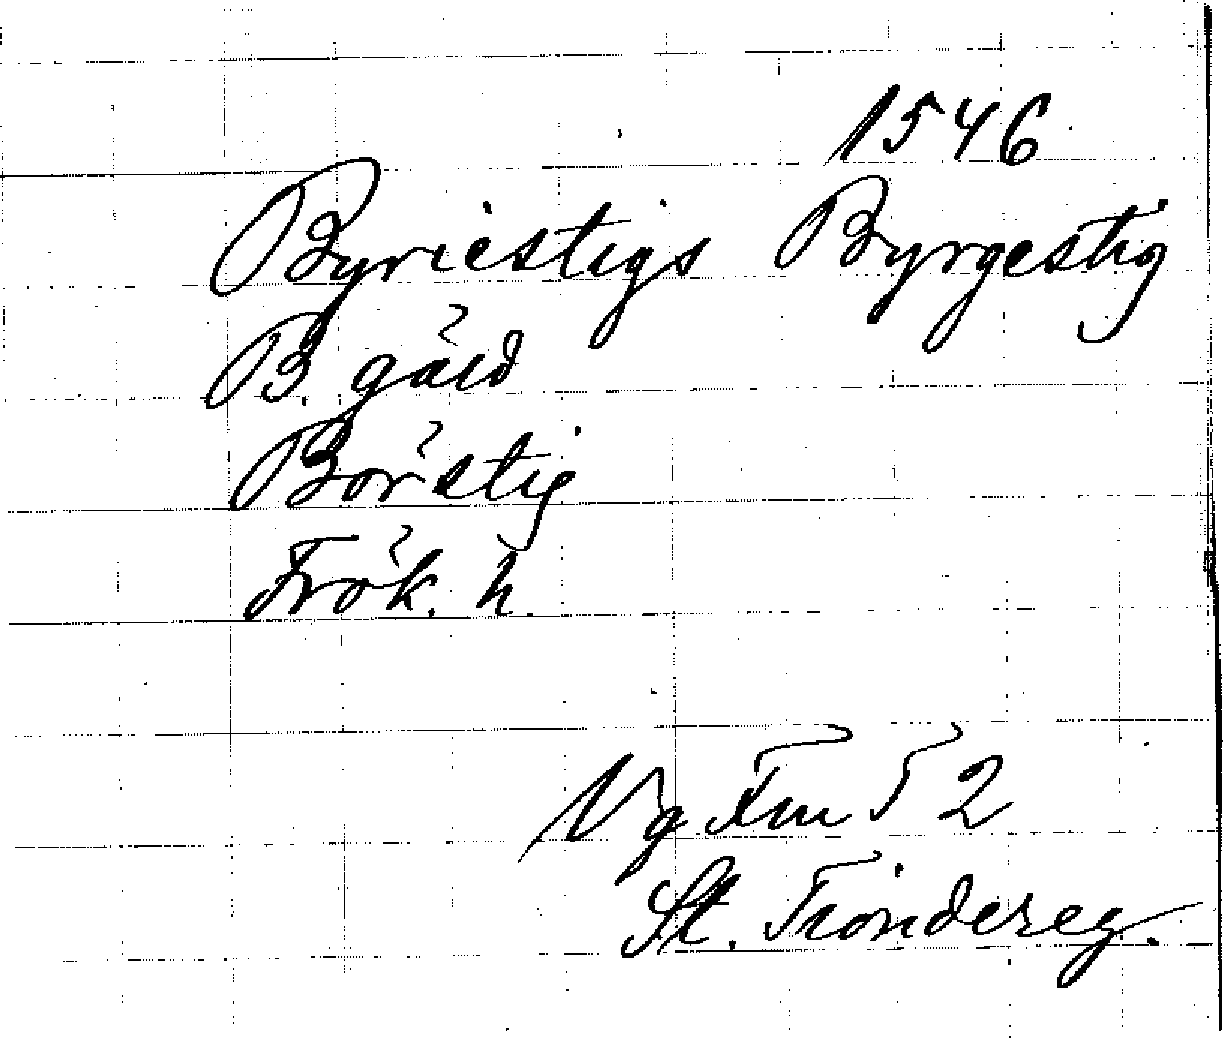 1546
Byriestigs Byrgestig
B. gård
Börstig
Frök. h.
Vg Fm 52
St. Tiondereg.